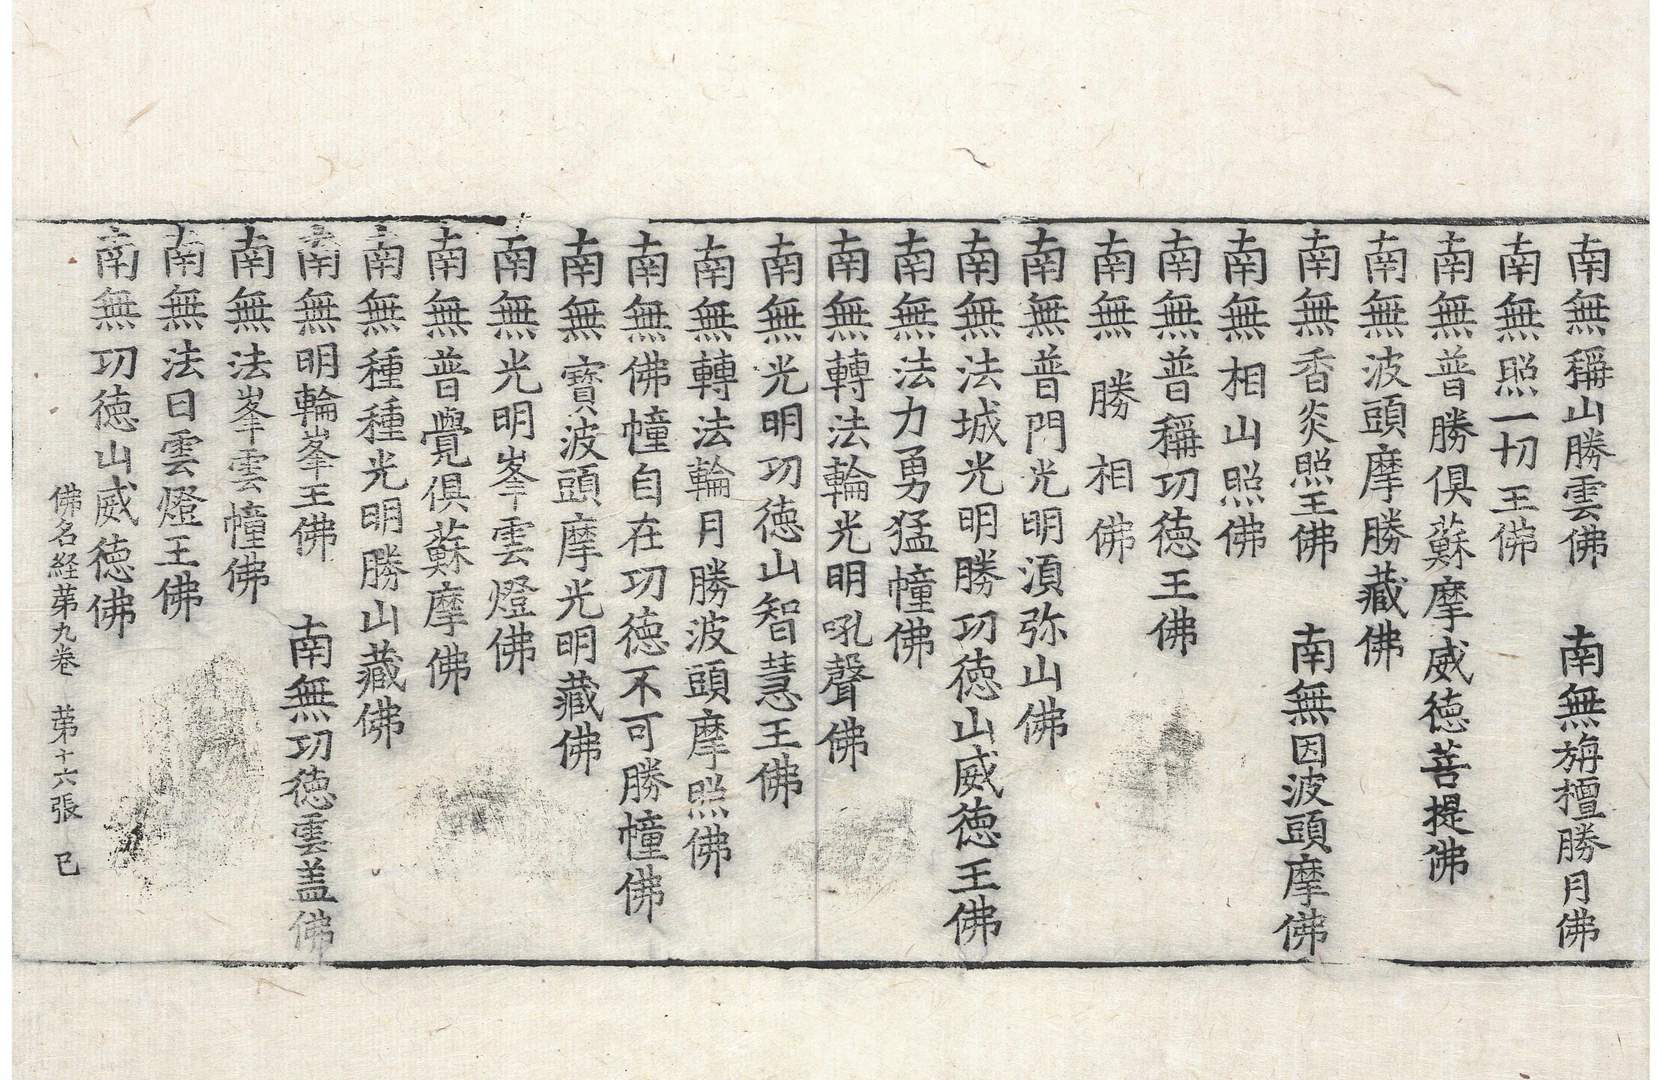 南無稱山勝雲佛　南無旃檀勝月佛
南無照一切王佛
南無普勝俱蘇摩威徳菩提佛
南無波頭摩勝藏佛
南無香炎照王佛　南無因波頭摩佛
南無相山照佛
南無普稱功徳王佛
南無勝相佛
南無普門光明湏弥山佛
南無法城光明勝功徳山威徳王佛
南無法力勇猛幢佛
南無轉法輪光明吼聲佛
南無光明功徳山智慧王佛
南無轉法輪月勝波頭摩照佛
南無佛幢自在功徳不可勝幢佛
南無寶波頭摩光明藏佛
南無光明峯雲燈佛
南無普覺俱蘇摩佛
南無種種光明勝山藏佛
南無明輪峯王佛　南無功徳雲盖佛
南無法峯雲幢佛
南無法日雲燈王佛
南無功徳山威徳佛
佛名経苐九卷　苐十六張　已